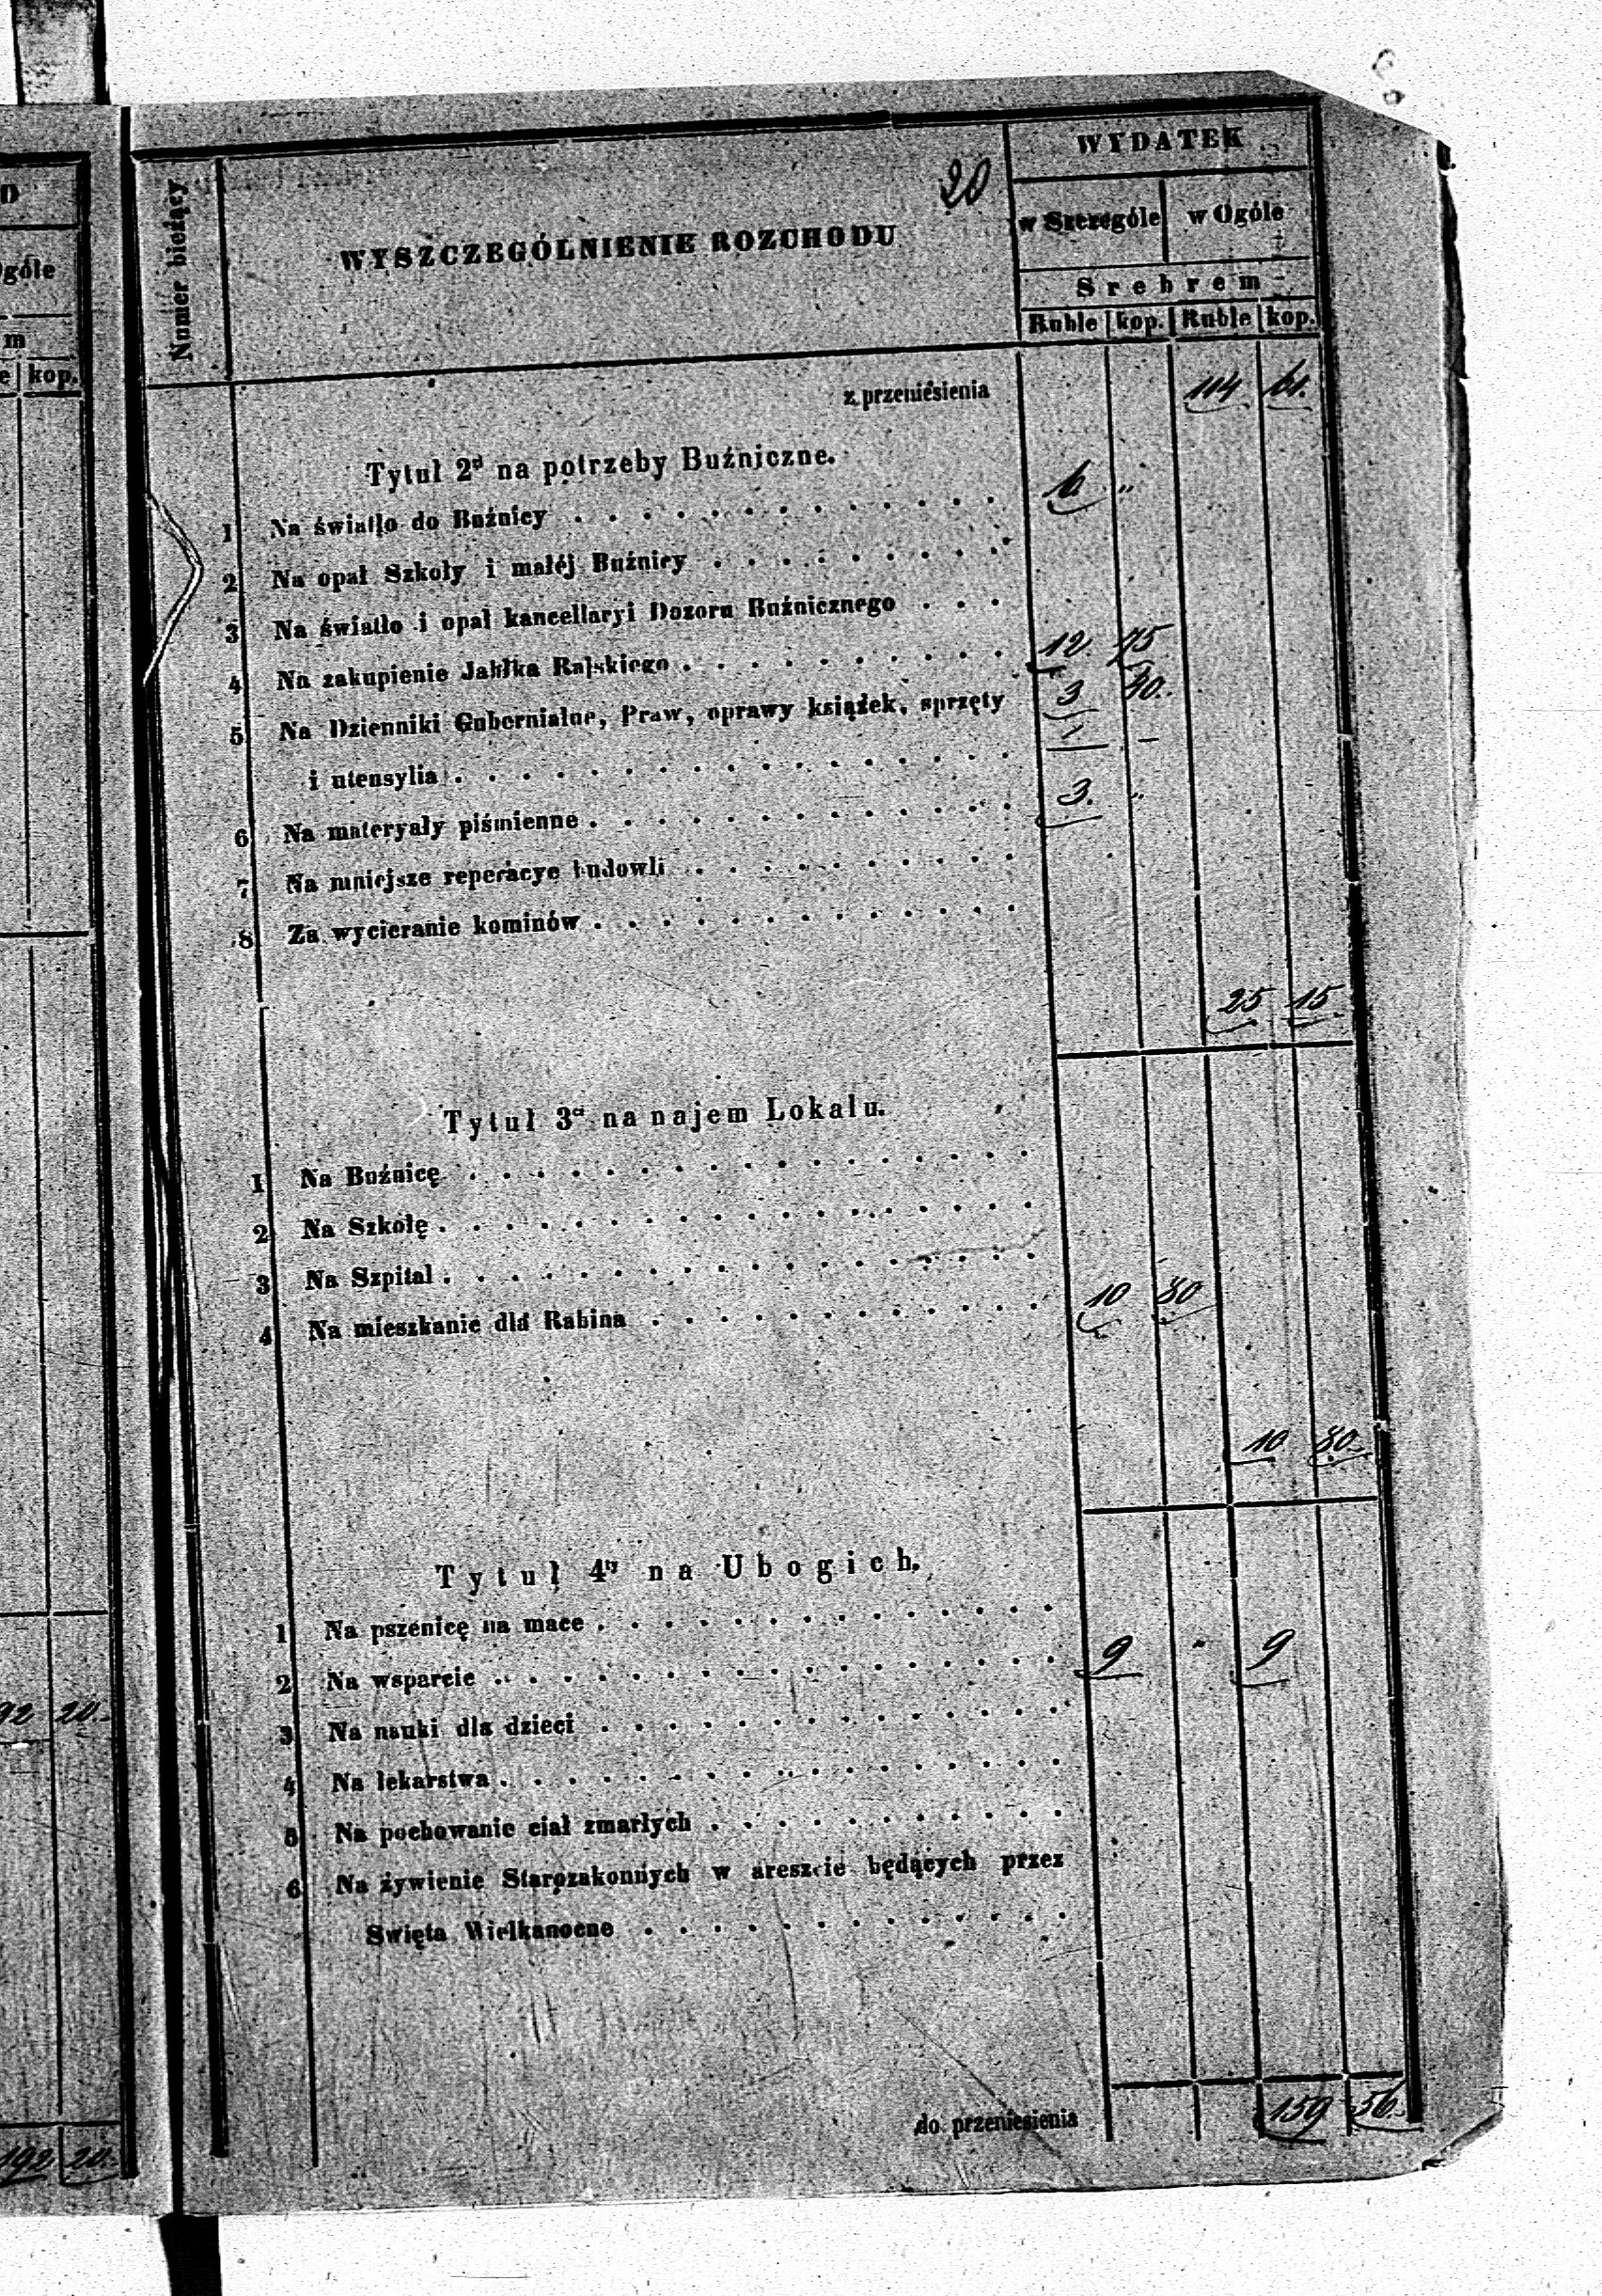 D
Ogóle
m
e kop.
92 20
192 20
20
Nomer bieżący
WYSZCZEGÓLNIENIE ROZCHODU
WYDATEK
w Szczególe w Ogóle
Srebrem
Ruble kop. Ruble kop.
z przeniesienia 114 61.
Tytuł 2d na potrzeby Buźniczne.
1 Na światło do Buźnicy 6 "
2 Na opał Szkoły i małéj Buźnicy
3 Na światło i opał kancellaryi Dozoru Buźnicznego
4 Na zakupienie Jabłka Rajskiego 12 75
5 Na Dzienniki Gubernialne, Praw, oprawy książek, sprzęty 3 40.
i utensylia
6 Na materyały piśmienne 3. "
7 Na mniejsze reperacye budowli
8 Za wycieranie kominów
25 15
Tytuł 3ci na najem Lokalu.
1 Na Buźnicę
2 Na Szkołę
3 Na Szpital
4 Na mieszkanie dla Rabina 10 80
10 80
Tytuł 4ty na Ubogich.
1 Na pszenicę na mace
2 Na wsparcie 9 " 9
3 Na nauki dla dzieci
4 Na lekarstwa
5 Na pochowanie ciał zmarłych
6 Na żywienie Starozakonnych w areszcie będących przez
Swięta Wielkanocne
do przeniesienia 159 56